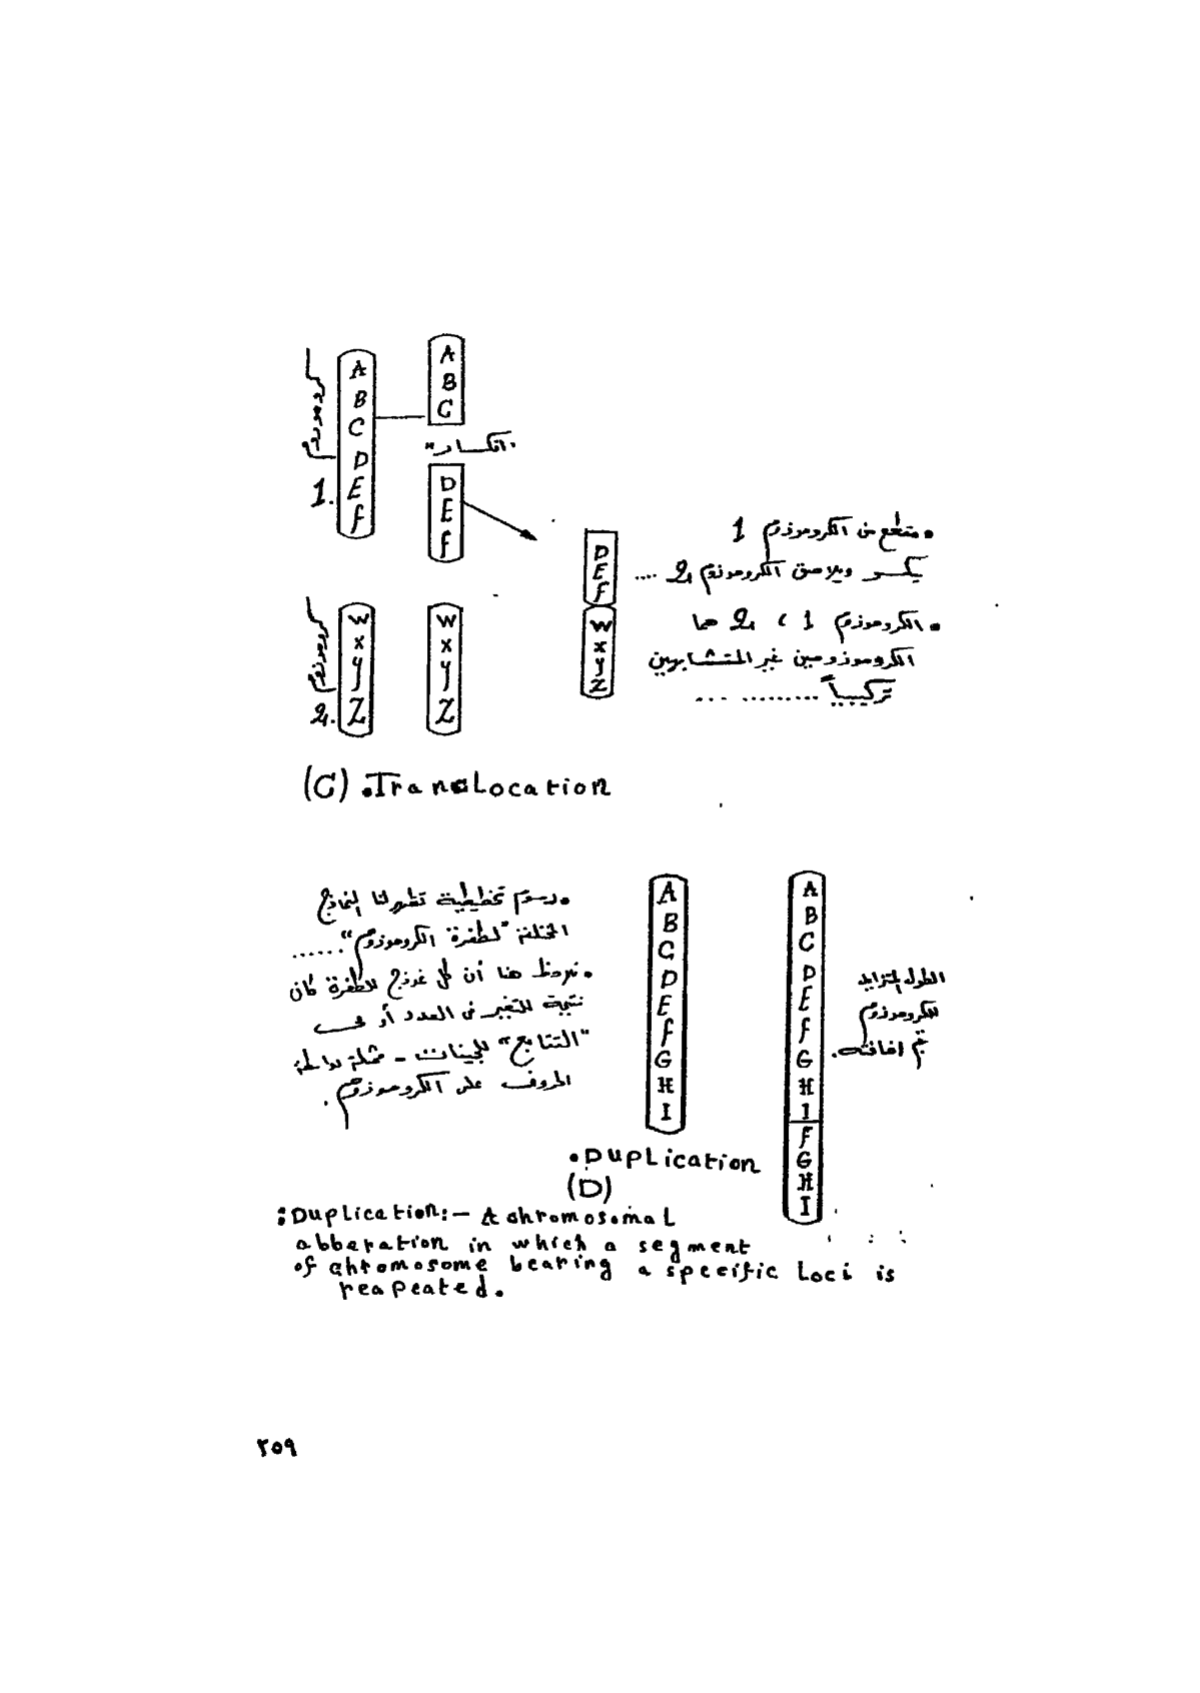 كروموزوم
1.
A
B
C
D
E
f
A
B
C
"انكسار"
D
E
f
D
E
F
W
x
y
Z
• مقطع من الكروموزوم 1
يكسر ويلاصق الكروموزوم 2 ....
• الكروموزوم 1 ، 2 هما
الكروموزومين غير المتشابهين
تركيبياً ......... ...
كروموزوم
2.
W
x
y
Z
W
x
y
Z
(C) .TransLocation
• رسوم تخطيطية تظهر لنا النماذج
المختلفة "لطفرة الكروموزوم" ......
• نلاحظ هنا أن كل نموذج للطفرة كان
نتيجة للتغير فى العدد أو
"التتابع" للجينات - ممثلة بواسطة
الحروف على الكروموزوم .
A
B
C
D
E
f
G
H
I
A
B
C
D
E
f
G
H
I
F
G
H
I
الطول المتزايد
للكروموزوم
تم اضافته.
• DUPLication
(D)
:DupLication:- A chromosomaL
abberation in which a segment
of chromosome bearing a specific Loci is
reapeated.
٢٥٩